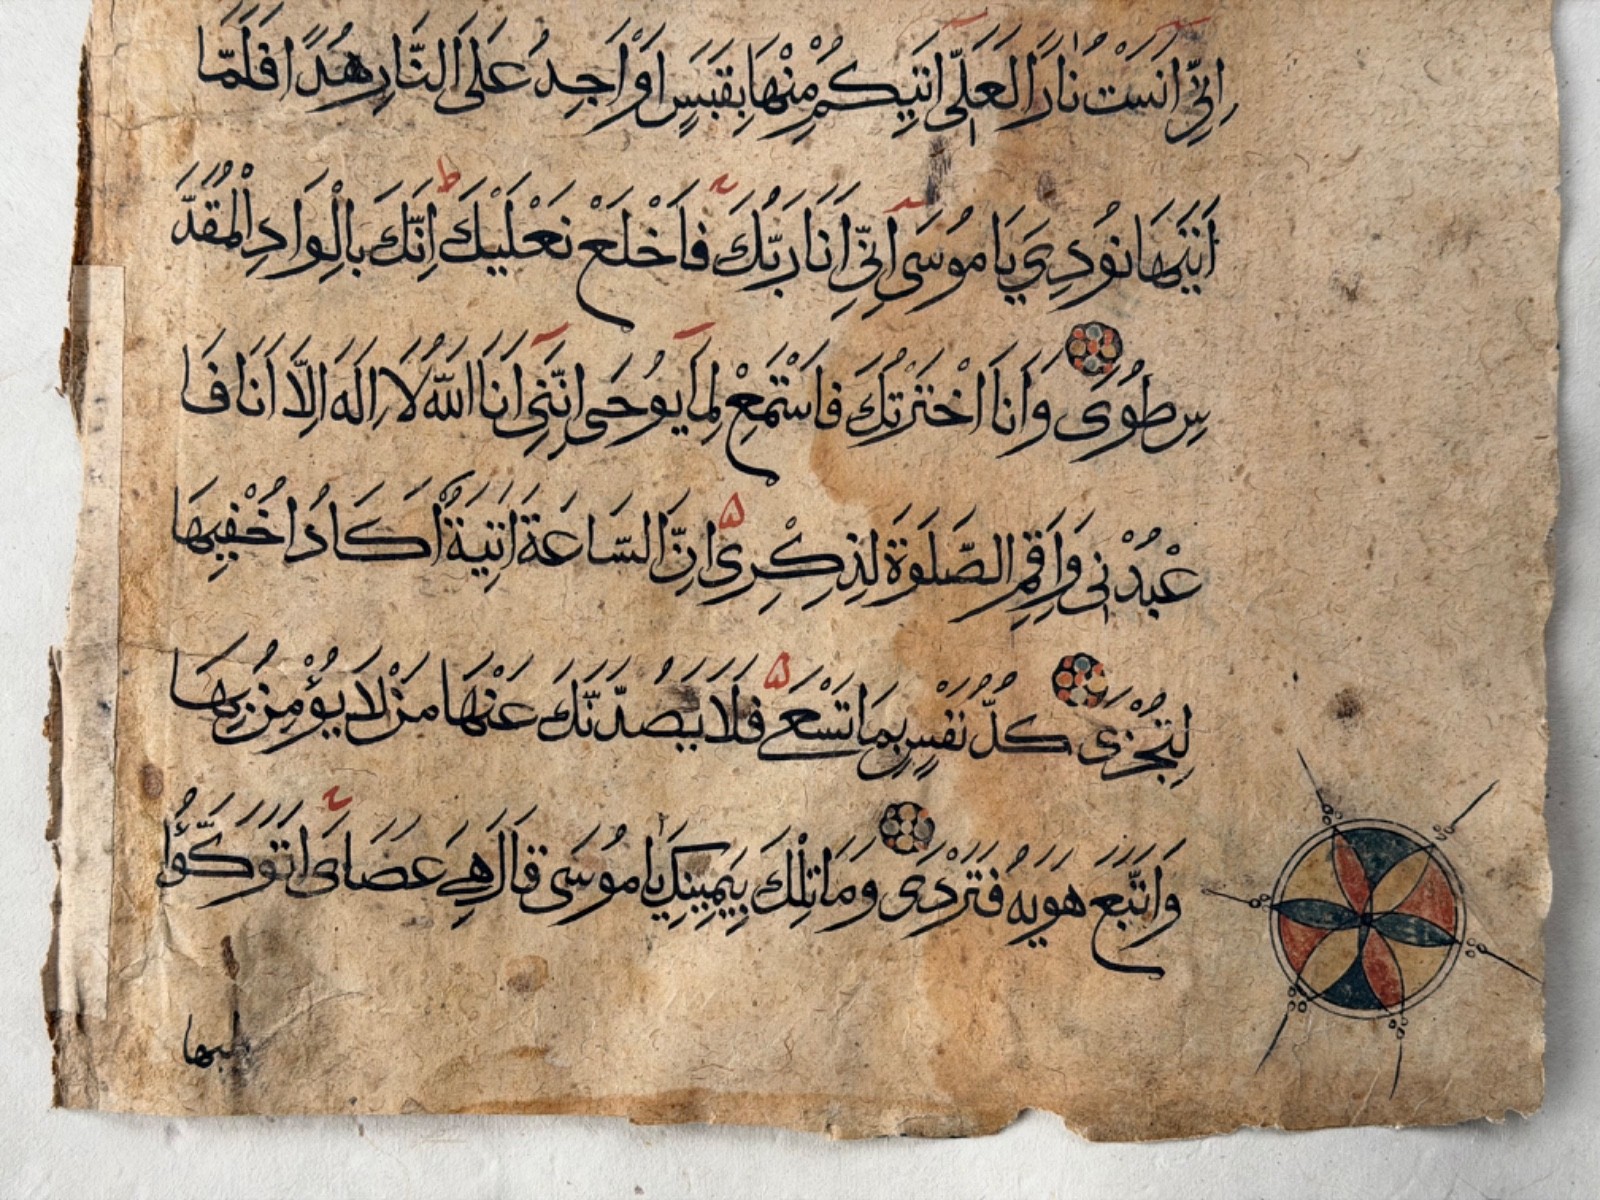 اِنِّي اٰنَسْتُ نَارًا لَعَلِّي اٰتِيكُمْ مِنْهَا بِقَبَسٍ اَوْ اَجِدُ عَلَى النَّارِ هُدًا فَلَمَّا
اَتٰيهَا نُودِيَ يَا مُوسَى اِنِّي اَنَا رَبُّكَ فَاخْلَعْ نَعْلَيْكَ اِنَّكَ بِالْوَادِ الْمُقَدَّ
سِ طُوًى وَاَنَا اخْتَرْتُكَ فَاسْتَمِعْ لِمَا يُوحَى اِنَّنِي اَنَا اللّٰهُ لَا اِلَهَ اِلَّا اَنَا فَا
عْبُدْنِي وَاَقِمِ الصَّلَوةَ لِذِكْرِي اِنَّ السَّاعَةَ اٰتِيَةٌ اَكَادُ اُخْفِيهَا
لِتُجْزَى كُلُّ نَفْسٍ بِمَا تَسْعَى فَلَا يَصُدَّنَّكَ عَنْهَا مَنْ لَا يُؤْمِنُ بِهَا
وَاتَّبَعَ هَوَيهُ فَتَرْدَى وَمَا تِلْكَ بِيَمِينِكَ يَا مُوسَى قَالَ هِيَ عَصَايَ اَتَوَكَّؤُا